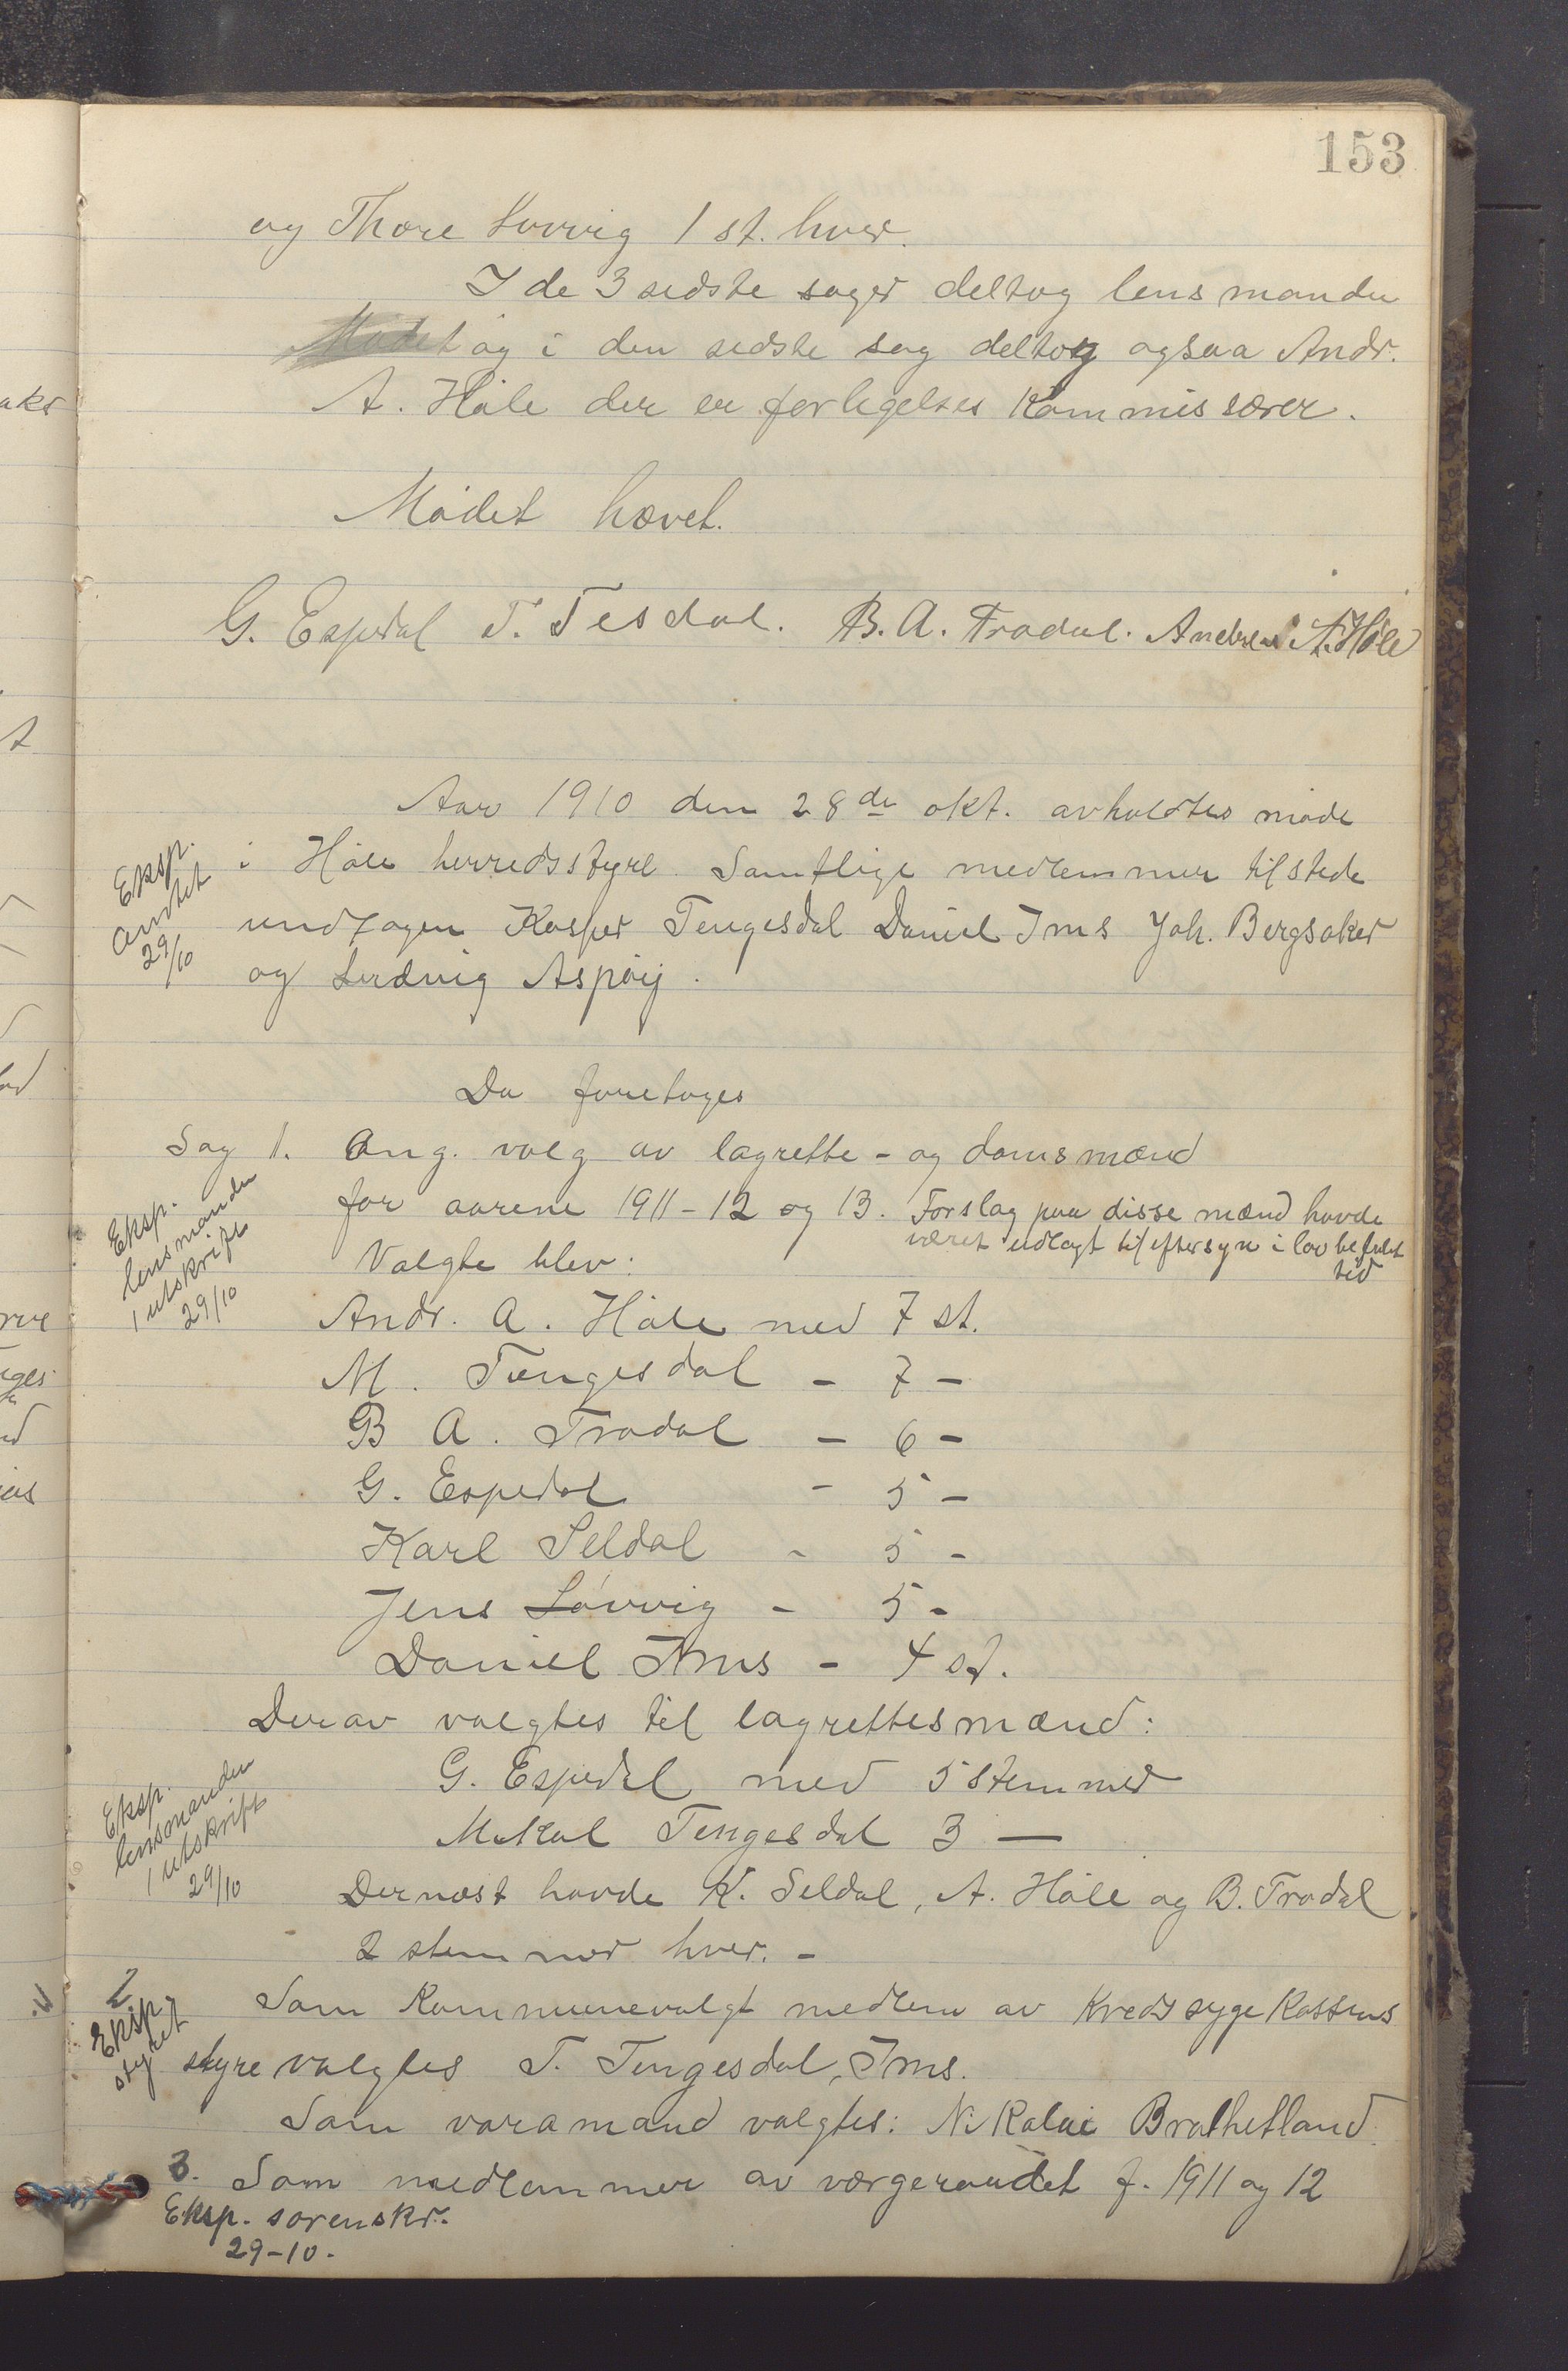 153
og Thore Lovvig 1 st. hver.
I de 3 sidste sager deltog lensmanden
Mødet og i den sidste sag deltog ogsaa Andr.
A. Høle der er forligelses kommissærer.
Mødet hævet.
G. Espedal T. Tesdal. B. A. Tradal. Andreas A. Høle
Aar 1910 den 28de okt. avholdtes møde
i Høle herredsstyre. Samtlige medlemmer tilstede
undtagen Kasper Tengesdal Daniel Ims Joh. Bergsaker
og Ludvig Aspøy.
Eksp.
amtet
29/10
Da foretages
Sag 1. Ang. valg av lagrette- og domsmænd
for aarene 1911-12 og 13. Forslag paa disse mænd havde
været udlagt til eftersyn i lovbefalet
tid
Valgte blev:
Eksp.
lensmanden
1 utskrift
29/10
Andr. A. Høle med 7 st.
M. Tengesdal - 7 -
B A. Tradal - 6 -
G. Espedal - 5 -
Karl Seldal - 5 -
Jens Løvvig - 5 -
Daniel Ims - 4 st.
Derav valgtes til lagrettesmænd:
G. Espedal med 5 stemmer
Mikal Tengesdal 3 —
Eksp.
lensmanden
1 utskrift
29/10
Dernæst havde K. Seldal, A. Høle og B. Tradal
2 stemmer hver. -
2 Som kommunevalgt medlem av kredssygekassens
Eksp.
styret
styre valgtes T. Tengesdal, Ims.
Som varamand valgtes: Nikolai Brathetland
3. Som medlemmer av værgeraadet f. 1911 og 12
Eksp. sorenskr.
29-10.